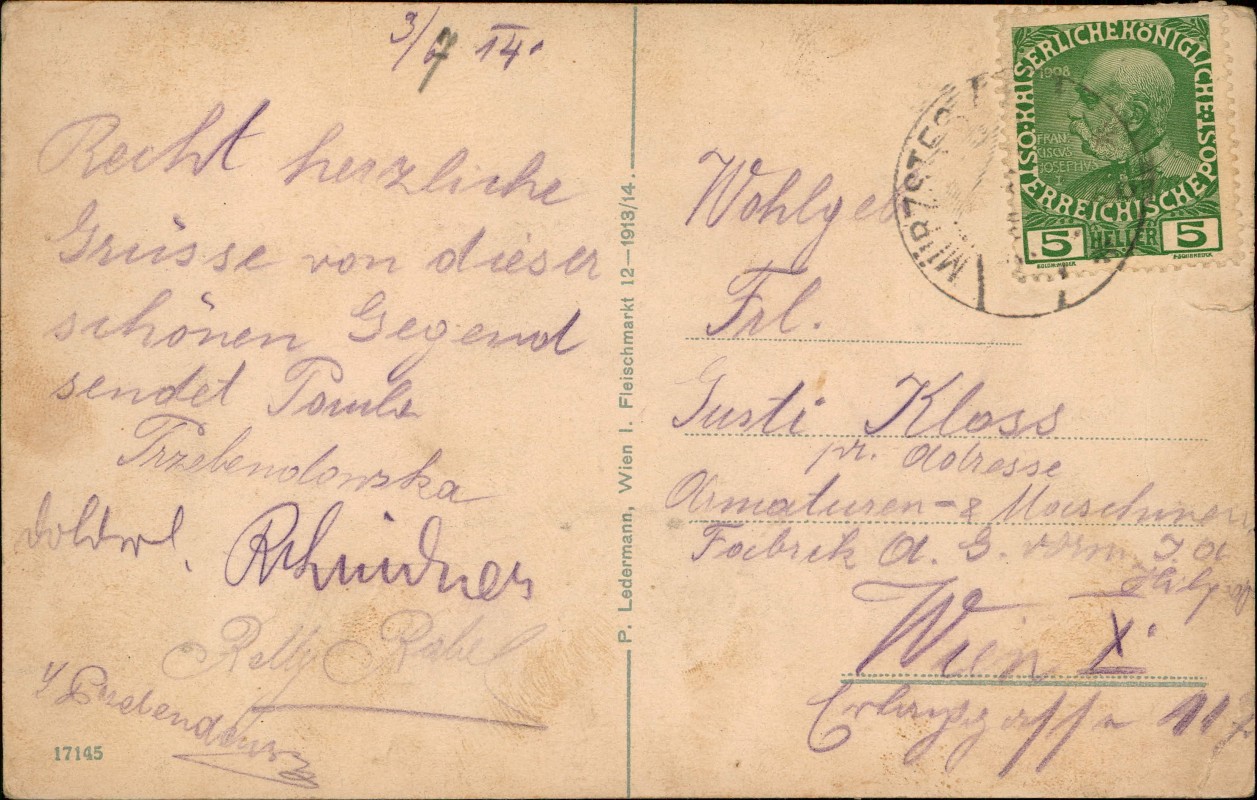 3/7 14.
Recht herzliche
Grüsse von dieser
schönen Gegend
sendet Paula
Trzebendowska
17145
P. Ledermann, Wien I. Fleischmarkt 12—1913/14.
KAISERLICHEKÖNIGLICHE
ÖSTERREICHISCHE POST
1908
FRAN
CISCVS
IOSEPHVS I
5 HELLER 5
MÜRZSTEG
Wohlgeb
Frl.
Gusti Kloss
pr. Adresse
Armaturen- & Maschinen
Fabrik A. G. vorm. J. A
Hilp
Wien X.